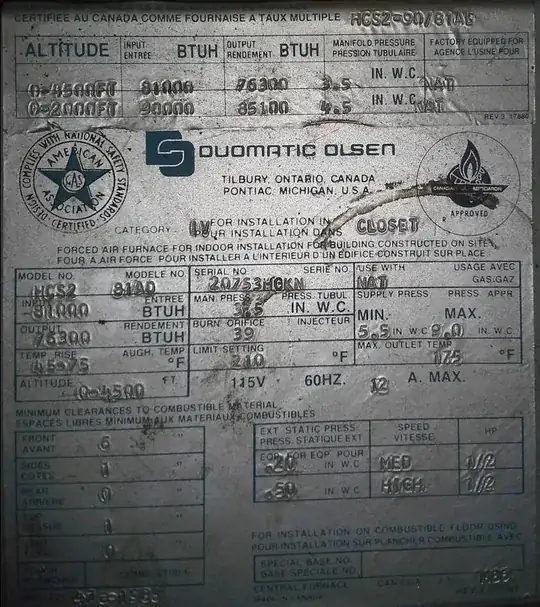 CERTIFIÉE AU CANADA COMME FOURNAISE A TAUX MULTIPLE HCS2-90/81A
ALTITUDE INPUT ENTRÉE BTUH OUTPUT RENDEMENT BTUH MANIFOLD PRESSURE PRESSION TUBULAIRE FACTORY EQUIPPED FOR AGENCE L'USINE POUR
0-4500FT 81000 76300 3.5 IN. W.C. NAT
0-2000FT 90000 85100 4.5 IN. W.C. NAT
REV.3
DESIGN COMPLIES WITH NATIONAL SAFETY STANDARDS
AMERICAN GAS ASSOCIATION
CERTIFIED
DUOMATIC OLSEN
TILBURY, ONTARIO, CANADA
PONTIAC, MICHIGAN, U.S.A.
APPROVED
CATEGORY IV FOR INSTALLATION IN CLOSET
POUR INSTALLATION DANS
FORCED AIR FURNACE FOR INDOOR INSTALLATION FOR BUILDING CONSTRUCTED ON SITE
POUR A FORCE POUR INSTALLER A L'INTERIEUR D'UN EDIFICE CONSTRUIT SUR PLACE
MODEL NO. MODELE NO. SERIAL NO. SERIE NO. USE WITH USAGE AVEC
HCS2 20753 NAT GAS.GAZ
INPUT ENTREE MAN PRESS PRESS TUBUL. SUPPLY PRESS PRESS APPR
81000 BTUH 3.5 IN. W.C. MIN. MAX.
OUTPUT RENDEMENT BURN ORIFICE INJECTEUR
76300 BTUH 39 5.5 IN W.C. 9.0 IN. W.C.
TEMP. RISE AUGH. TEMP. LIMIT SETTING MAX. OUTLET TEMP
45-75 °F 210 °F 175 °F
ALTITUDE 0-4500 FT. 115V 60HZ. 12 A. MAX.
MINIMUM CLEARANCES TO COMBUSTIBLE MATERIAL
ESPACES LIBRES MINIMUM AUX MATERIAUX COMBUSTIBLES
FRONT AVANT 6 "
SIDES COTES 1 "
REAR 0 "
1 "
EXT STATIC PRESS PRESS STATIQUE EXT SPEED VITESSE HP
EQP. FOR EQP POUR
.20 IN W.C MED 1/2
.50 IN W.C HIGH 1/2
FOR INSTALLATION ON COMBUSTIBLE FLOOR USING
POUR INSTALLATION SUR PLANCHER COMBUSTIBLE AVEC
SPECIAL BASE NO.
BASE SPECIALE NO.
CENTRAL FURNACE CANADA